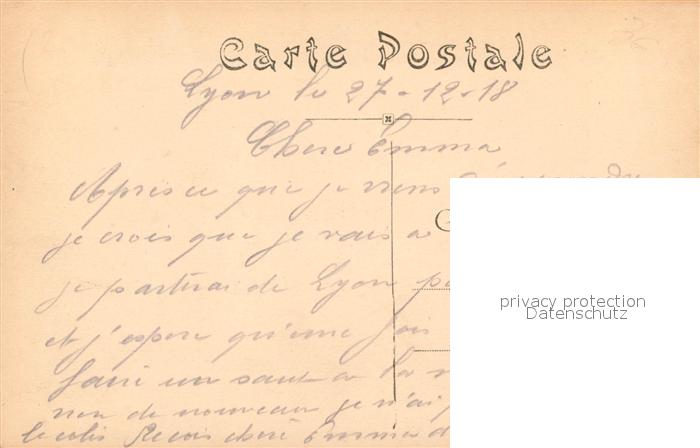 Carte Postale
Lyon le 27-12-18
Chere Emma
Apres ce que je viens
je crois que je vais a
je partirai de Lyon
et j'espere qu'une fois
faire un saut a la
non de nouveau je n'ai
le colis Recois chere Emma
privacy protection
Datenschutz